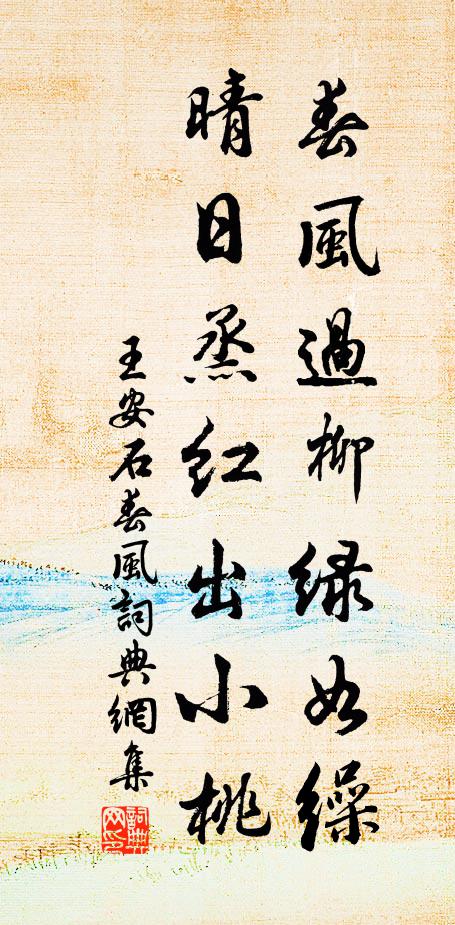 春風過柳綠如繰
晴日烝紅出小桃
王安石春風詞典網集
詞典網印